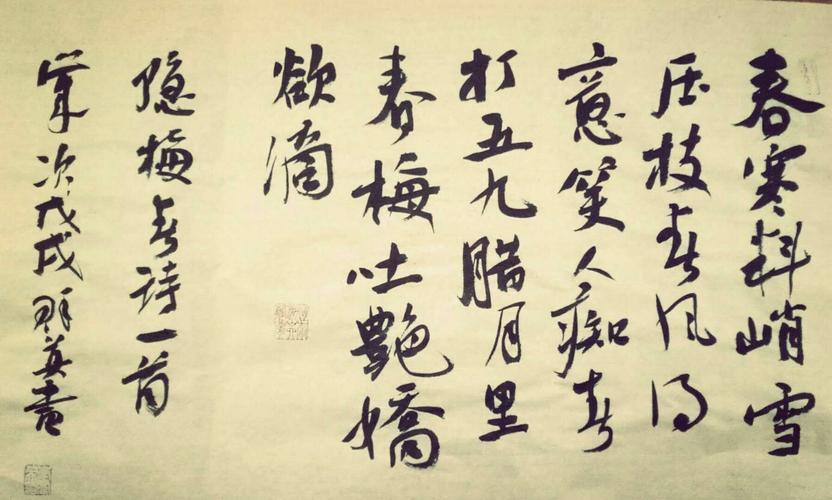 春寒料峭雪
压枝春风得
意笑人痴春
打五九腊月里
春梅吐艷嬌
欲滴
隐梅春诗一首
岁次戊戌英書